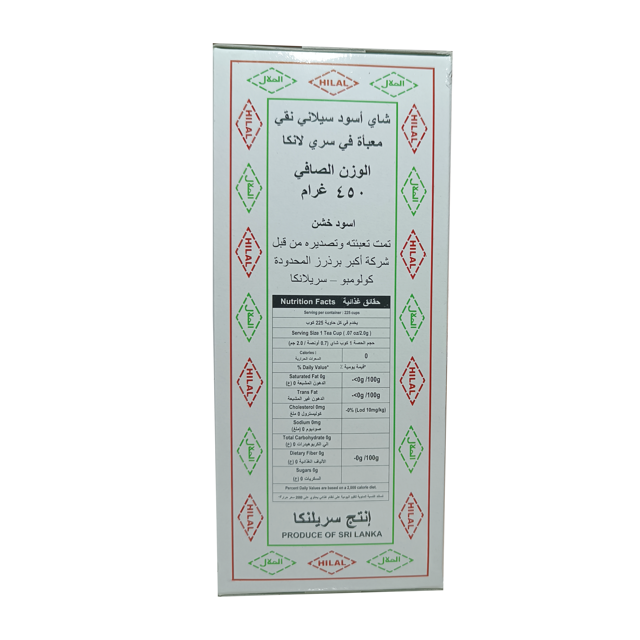 الهلال HILAL الهلال
شاي أسود سيلاني نقي
معبأة في سري لانكا
الوزن الصافي
٤٥٠ غرام
اسود خشن
تمت تعبئته وتصديره من قبل
شركة أكبر برذرز المحدودة
كولومبو – سريلانكا
Nutrition Facts حقائق غذائية
Serving per container - 225 cups
يخدم في كل حاوية 225 كوب
Serving Size 1 Tea Cup ( .07 oz/2.0g )
حجم الحصة 1 كوب شاي (0.7 أونصة / 2.0 جم)
Calories /
السعرات الحرارية
0
% Daily Value* / القيمة يومية*
Saturated Fat 0g
الدهون المشبعة 0 (غ)
-<0g /100g
Trans Fat
الدهون غير المشبعة
-<0g /100g
Cholesterol 0mg
كوليسترول 0 ملغ
-0% (Lod 10mg/kg)
Sodium 0mg
صوديوم 0 (ملغ)
Total Carbohydrate 0g
الي الكربوهيدرات 0 (غ)
Dietary Fiber 0g
الألياف الغذائية 0 (غ)
-0g /100g
Sugars 0g
السكريات 0 (غ)
Percent Daily Values are based on a 2,000 calorie diet.
إنتج سريلنكا
PRODUCE OF SRI LANKA
الهلال HILAL الهلال
HILAL
الهلال
HILAL
الهلال
HILAL
الهلال
HILAL
HILAL
الهلال
HILAL
الهلال
HILAL
الهلال
HILAL